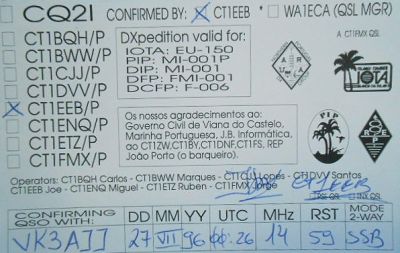 CQ2I CONFIRMED BY: X CT1EEB * WA1ECA (QSL MGR)
* A CT1FMX QSL
CT1BQH/P
CT1BWW/P
CT1CJJ/P
CT1DVV/P
X CT1EEB/P
CT1ENQ/P
CT1ETZ/P
CT1FMX/P
DXpedition valid for:
IOTA: EU-150
PIP: MI-001P
DIP: MI-001
DFP: FMI-001
DCFP: F-006
IOTA
Os nossos agradecimentos ao:
Governo Civil de Viana do Castelo,
Marinha Portuguesa, J.B. Informática,
ao CT1ZW, CT1BY, CT1DNF, CT1FS, REP
João Porto (o barqueiro).
PIP
Operators: CT1BQH Carlos - CT1BWW Marques - CT1CJJ Lopes - CT1DVV Santos
CT1EEB Joe - CT1ENQ Miguel - CT1ETZ Ruben - CT1FMX Jorge
CT1EEB
PSE QSL TNX QSL
CONFIRMING QSO WITH: DD MM YY UTC MHz RST MODE 2-WAY
VK3AJJ 27 VII 96 00:26 14 59 SSB